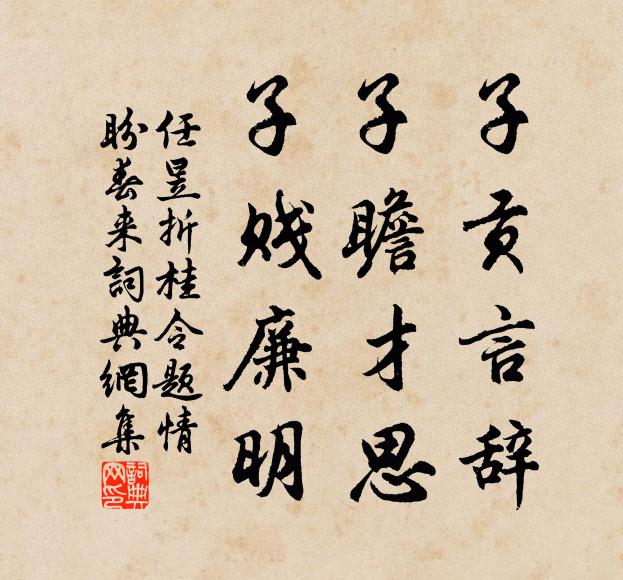 子贡言辞
子瞻才思
子贱廉明
任昱折桂令题情
盼春来詞典網集
詞典
网印